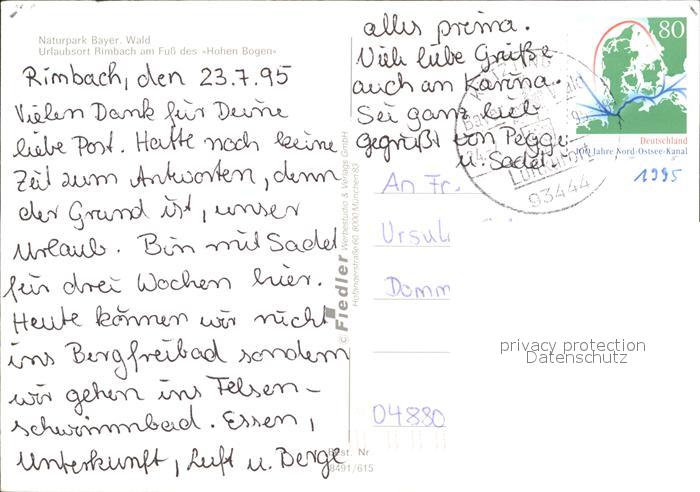 Naturpark Bayer. Wald
Urlaubsort Rimbach am Fuß des »Hohen Bogen«
Rimbach, den 23.7.95
Vielen Dank für Deine
liebe Post. Hatte noch keine
Zeit zum Antworten, denn
der Grund ist, unser
Urlaub. Bin mit Sadet
für drei Wochen hier.
Heute können wir nicht
ins Bergfreibad sondern
wir gehen ins Felsen-
schwimmbad. Essen,
Unterkunft, Luft u. Berge
alles prima.
Viele liebe Grüße
auch an Karina.
Sei ganz lieb
gegrüßt von Peggi
u. Sadet.
© Fiedler Werbestudio & Verlags GmbH
Hofangerstraße 60 8000 München 83
Best. Nr
8491/615
80
Deutschland
100 Jahre Nord-Ostsee-Kanal
1995
Luftkurort
93444
An Fr.
Ursul
Domm
04880
privacy protection
Datenschutz